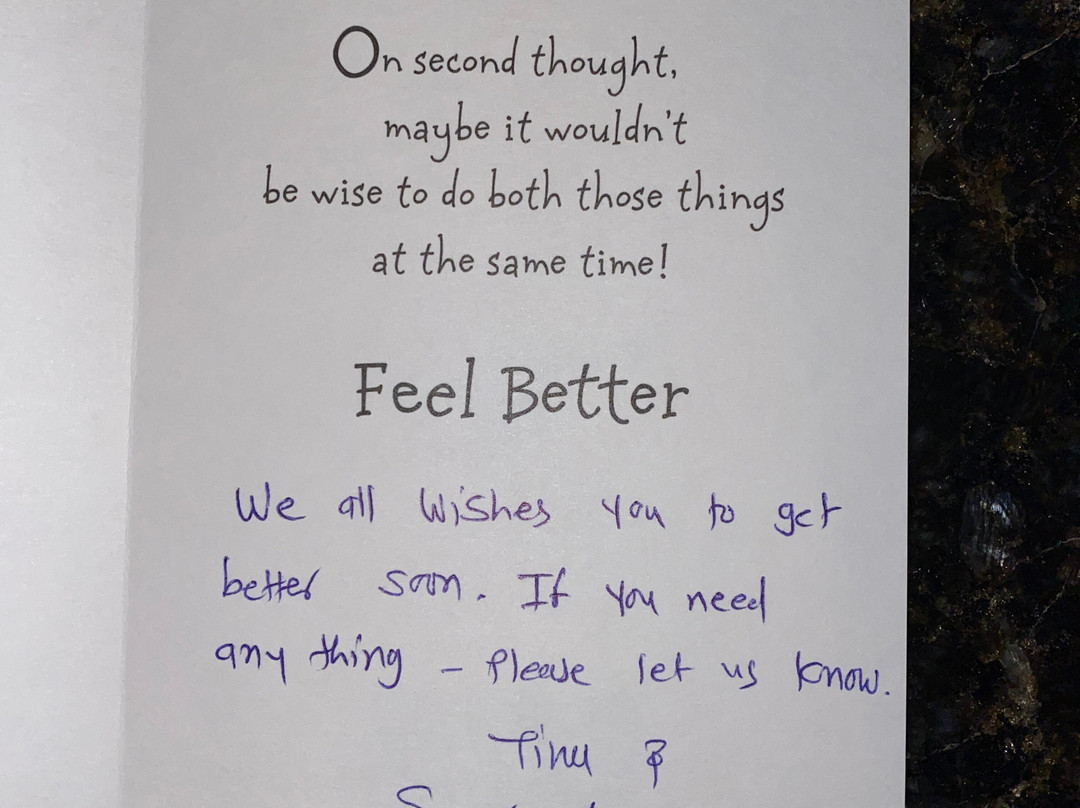 On second thought,
maybe it wouldn't
be wise to do both those things
at the same time!
Feel Better
We all Wishes you to get
better soon. If you need
any thing - Please let us know.
Tinu &